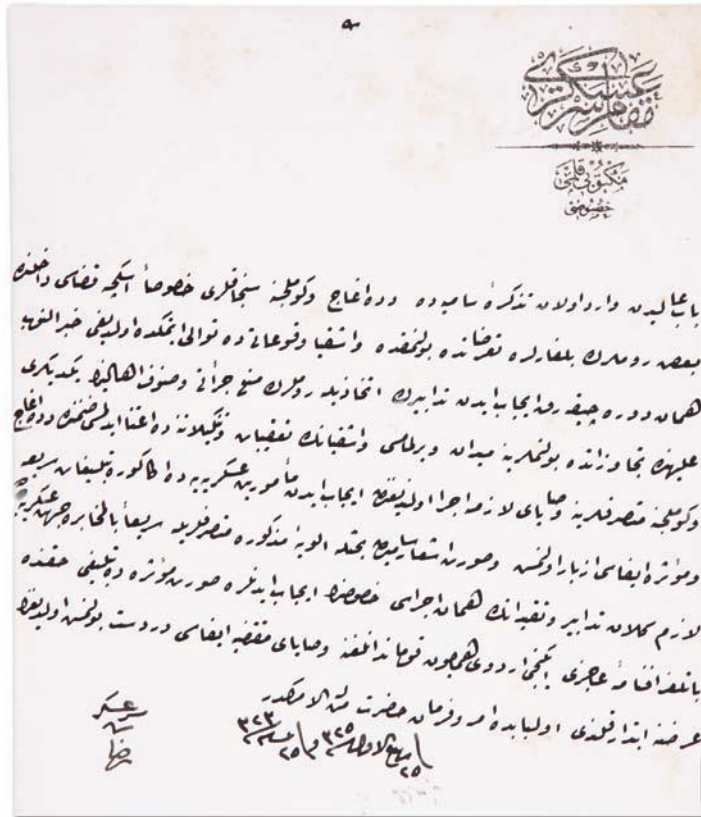 مقام سرعسكرى
مكتوبى قلمى
خصوصى
باب عاليدن وارد اولان تذكرهٔ ساميه ده دده اغاج وكوملجنه سنجاقلرى خصوصاً اسكچه قضاسى داخلنده
بعض روملرك بلغارلره تعرضاتده بولنمقده واشقيا وقوعاتى ده توالى ايتمكده اولديغى خبر النوب
همان دوره چيقهرق ايجاب ايدن تدابيرك اتخاذيله روملرك منع جرأتى وصنوف اهالينك يكديكرى
عليهنده تجاوزاتده بولنملرينه ميدان ويرلمامسى واشقيانك تعقيبات وتنكيلاتنه ده اعتنا ايدلمسى ضمننده دده اغاج
وكوملجنه متصرفلرينه وصاياى لازمه اجرا اولنديغندن ايجاب ايدن مأمورين عسكريه يه ده اكا كوره تبليغات سريعه
ومؤثره ايفاسى ازبار اولنمش وصورت اشعار ساميدن بحثله الويهٔ مذكوره متصرفلريله سريعاً بالمخابره جهت عسكريه جه
لازم كلان تدابير وتقيداتك همان اجراسى خصوصنك ايجاب ايدنلره صورت مؤثره ده تبليغى حقنده
باتلغرافنامهٔ عاجزى ايكنجى اردوى همايون قوماندانلغنه وصاياى مقتضيه ايفاسى دردست بولنمش اولديغنك
عرضنه ابتدار قلندى اولبابده امر وفرمان حضرت من له الامركدر
فى ٢٥ ربيع الاول سنه ٣٢٥ وفى ٢٥ نيسان سنه ٣٢٣
سرعسكر
رضا